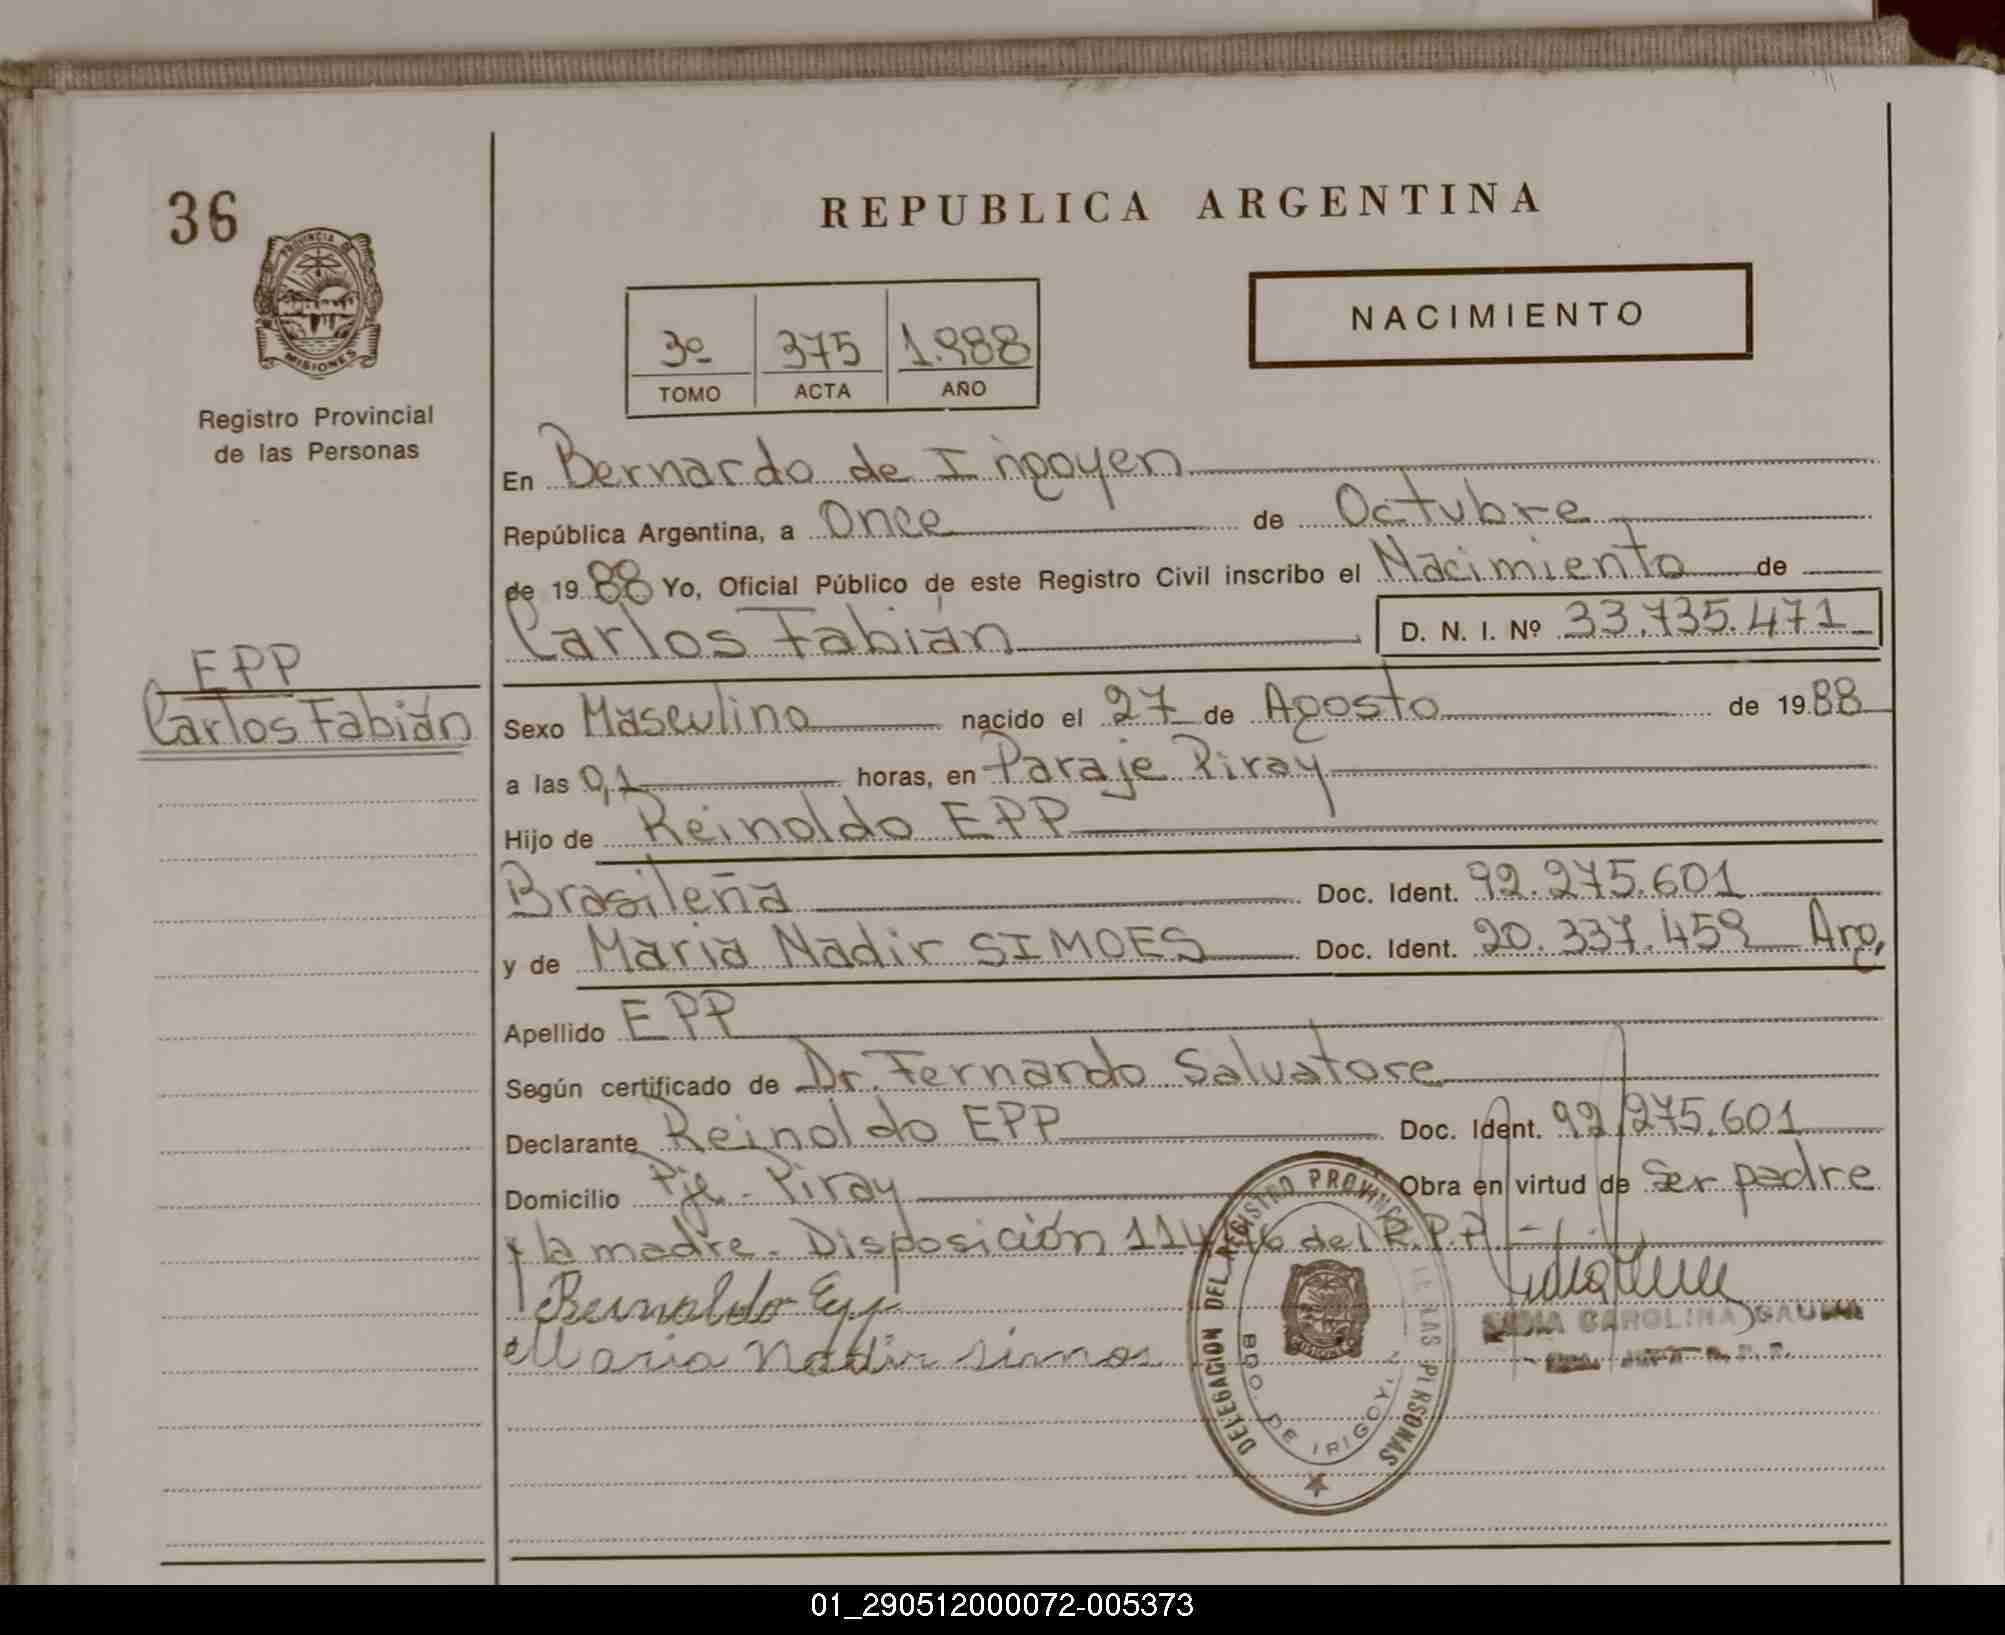 36
PROVINCIA DE
MISIONES
Registro Provincial
de las Personas
EPP
Carlos Fabián
REPUBLICA ARGENTINA
NACIMIENTO
3º 375 1.988
TOMO ACTA AÑO
En Bernardo de Irigoyen
República Argentina, a Once de Octubre
de 1988 Yo, Oficial Público de este Registro Civil inscribo el Nacimiento de
Carlos Fabián D. N. I. Nº 33.735.471
Sexo Masculino nacido el 27 de Agosto de 1988
a las 0,1 horas, en Paraje Piray
Hijo de Reinoldo EPP
Brasileña Doc. Ident. 92.275.601
y de Maria Nadir SIMOES Doc. Ident. 20.337.459 Arg.
Apellido EPP
Según certificado de Dr. Fernando Salvatore
Declarante Reinoldo EPP Doc. Ident. 92.275.601
Domicilio Pje. Piray Obra en virtud de Ser padre
y la madre. Disposición 114/76 del R.P.P.
Reinoldo Epp
Maria Nadir
DELEGACION DEL REGISTRO PROVINCIAL DE LAS PERSONAS
BDO. DE IRIGOYEN
CAROLINA
01_290512000072-005373